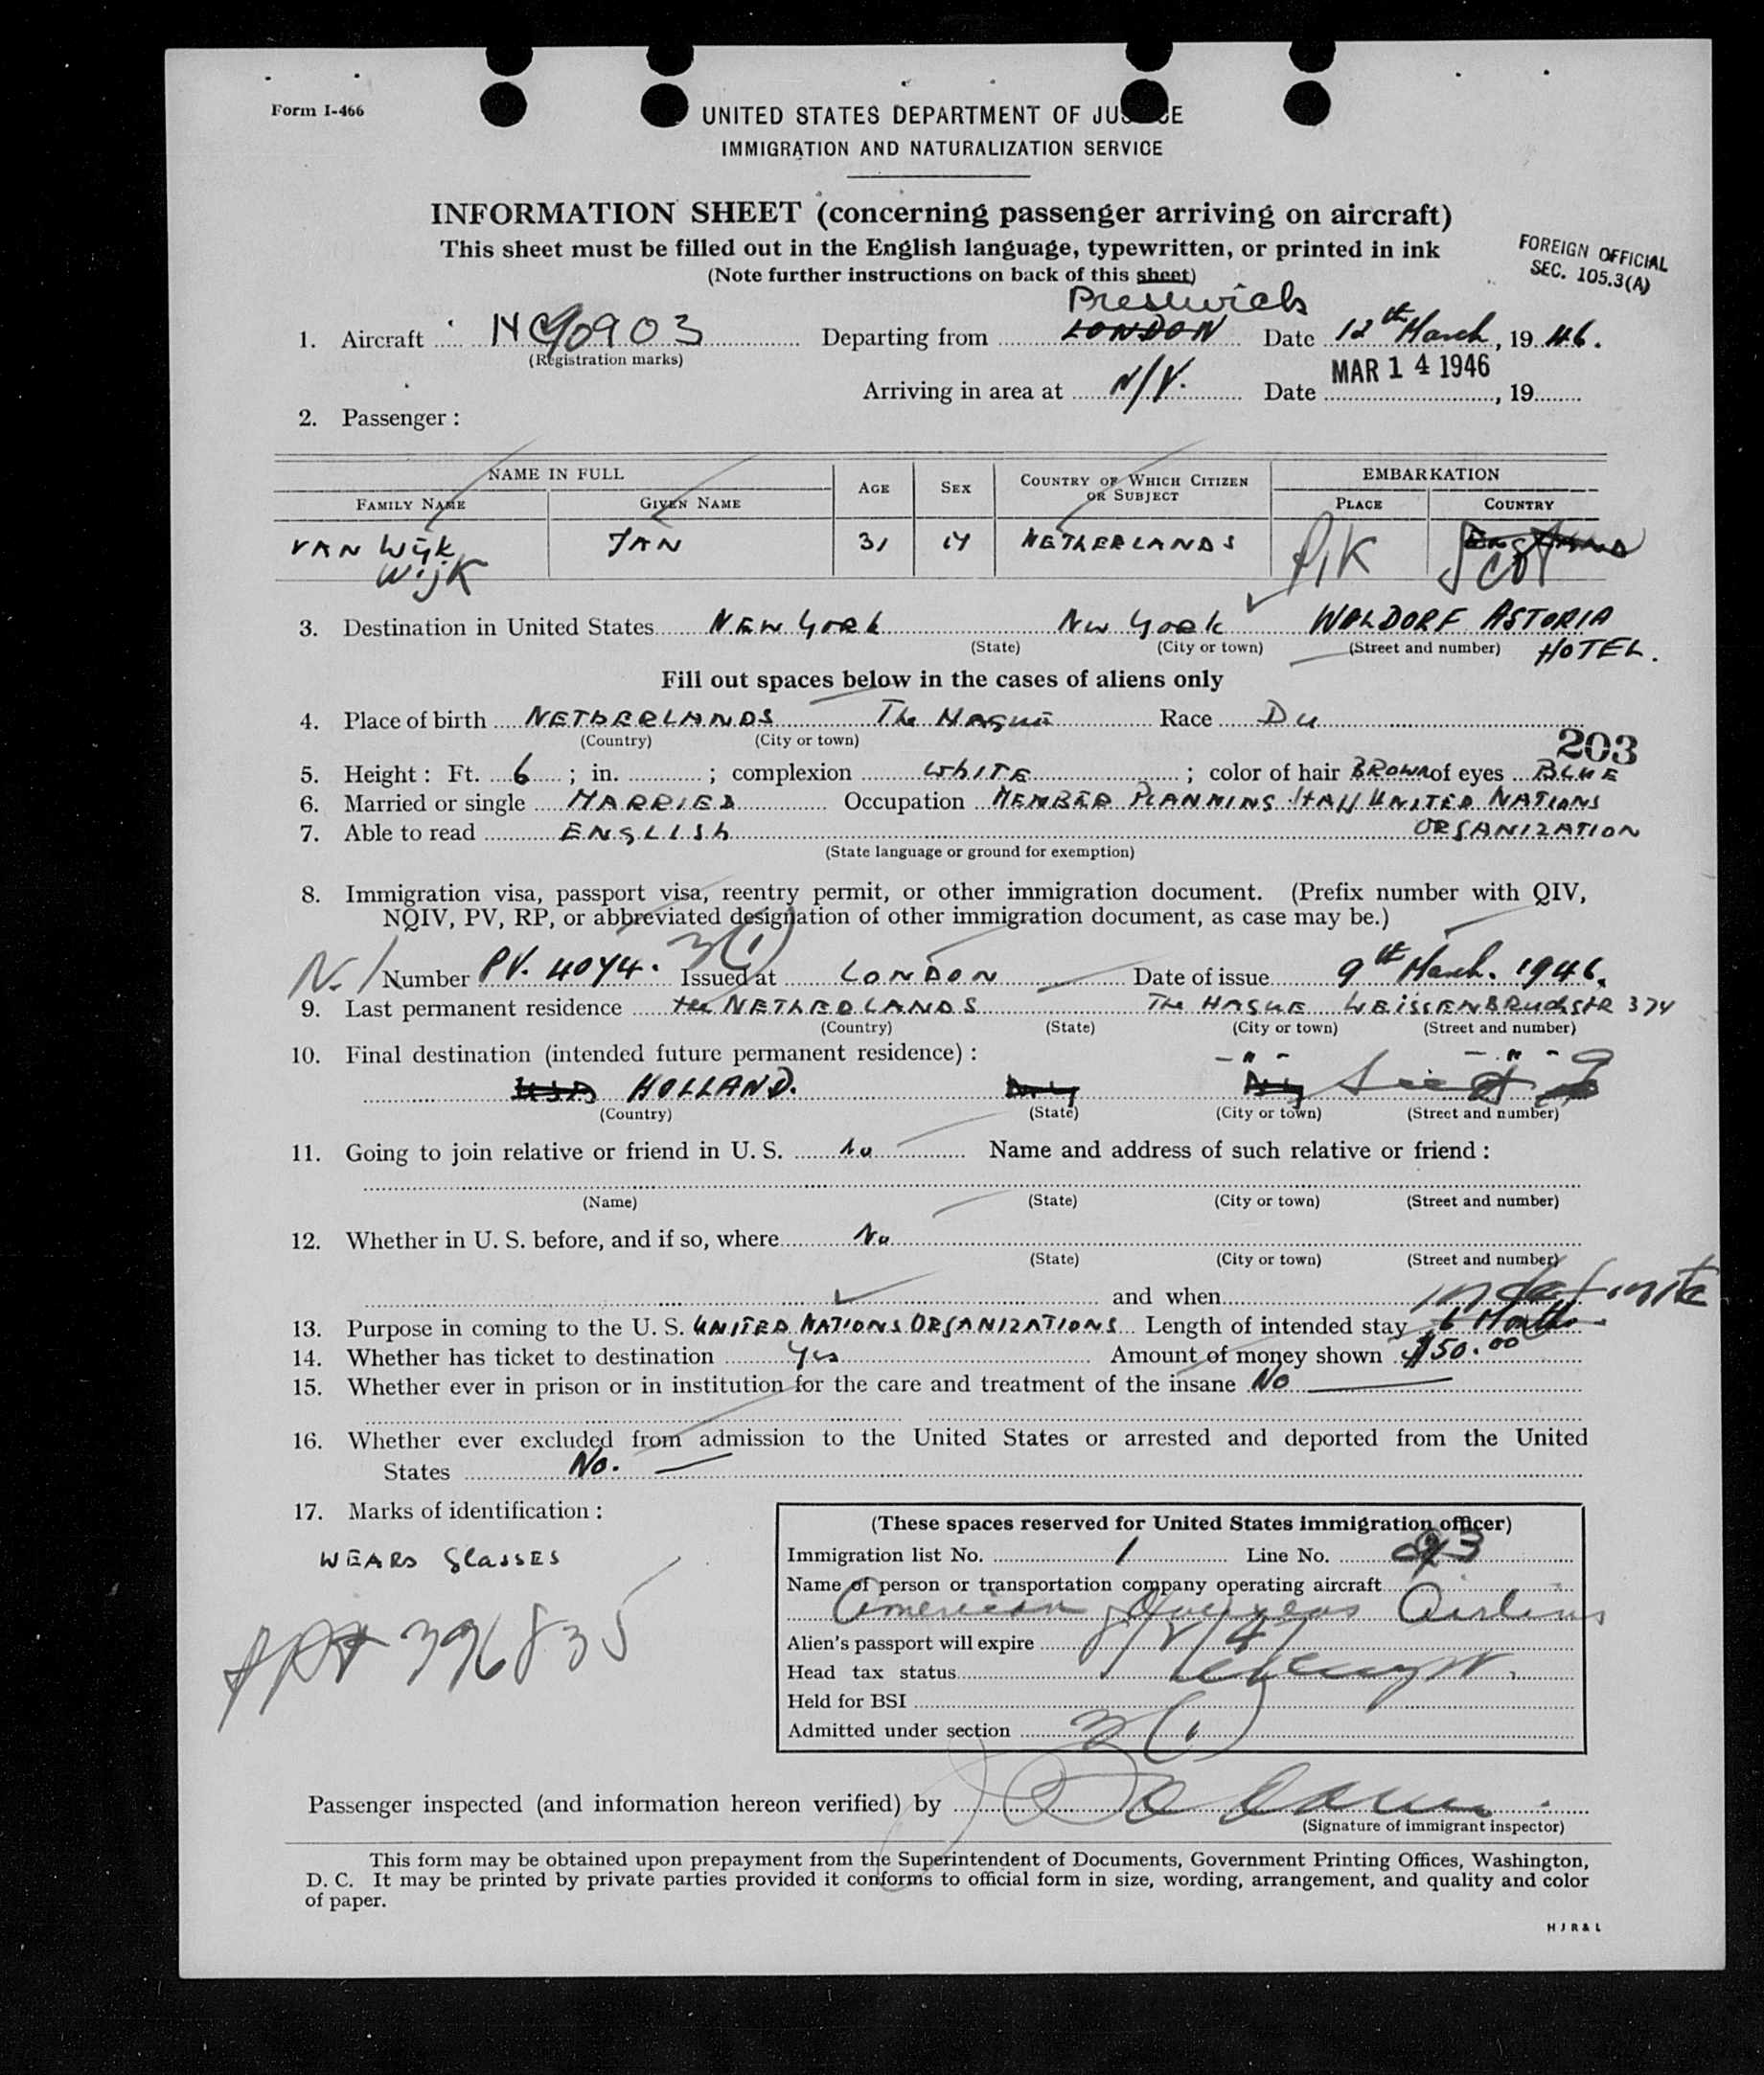 Form I-466
UNITED STATES DEPARTMENT OF JUSTICE
IMMIGRATION AND NATURALIZATION SERVICE
INFORMATION SHEET (concerning passenger arriving on aircraft)
This sheet must be filled out in the English language, typewritten, or printed in ink
(Note further instructions on back of this sheet)
FOREIGN OFFICIAL
SEC. 105.3(A)
Prestwick
1. Aircraft NC90903 Departing from LONDON Date 12th March, 1946.
(Registration marks)
Arriving in area at N/Y. Date MAR 14 1946, 19
2. Passenger :
NAME IN FULL AGE SEX COUNTRY OF WHICH CITIZEN OR SUBJECT EMBARKATION
FAMILY NAME GIVEN NAME PLACE COUNTRY
VAN Wijk JAN 31 M NETHERLANDS PIK ENGLAND
Wijk Scot
3. Destination in United States NEW YORK New York WALDORF ASTORIA
(State) (City or town) (Street and number) HOTEL.
Fill out spaces below in the cases of aliens only
4. Place of birth NETHERLANDS The Hague Race Du
(Country) (City or town)
203
5. Height : Ft. 6 ; in. ; complexion WHITE ; color of hair BROWN of eyes BLUE
6. Married or single MARRIED Occupation MEMBER PLANNING Staff UNITED NATIONS
7. Able to read ENGLISh ORGANIZATION
(State language or ground for exemption)
8. Immigration visa, passport visa, reentry permit, or other immigration document. (Prefix number with QIV,
NQIV, PV, RP, or abbreviated designation of other immigration document, as case may be.)
3(1)
Number PV. 4074. Issued at LONDON Date of issue 9th March. 1946.
9. Last permanent residence the NETHERLANDS The HAGUE WEISSENBRUCHSTR 374
(Country) (State) (City or town) (Street and number)
10. Final destination (intended future permanent residence) : - " - - " -
USA HOLLAND. See # 9
(Country) (State) (City or town) (Street and number)
11. Going to join relative or friend in U. S. No Name and address of such relative or friend :
(Name) (State) (City or town) (Street and number)
12. Whether in U. S. before, and if so, where No
(State) (City or town) (Street and number)
and when
indefinite
13. Purpose in coming to the U. S. UNITED NATIONS ORGANIZATIONS Length of intended stay 6 Months
14. Whether has ticket to destination Yes Amount of money shown $50.00
15. Whether ever in prison or in institution for the care and treatment of the insane No
16. Whether ever excluded from admission to the United States or arrested and deported from the United
States No.
17. Marks of identification :
WEARS GLASSES
396835
(These spaces reserved for United States immigration officer)
Immigration list No. 1 Line No. 23
Name of person or transportation company operating aircraft
American Overseas Airlines
Alien's passport will expire 8/2/47
Head tax status exempt.
Held for BSI
Admitted under section 3(1)
Passenger inspected (and information hereon verified) by
(Signature of immigrant inspector)
This form may be obtained upon prepayment from the Superintendent of Documents, Government Printing Offices, Washington,
D. C. It may be printed by private parties provided it conforms to official form in size, wording, arrangement, and quality and color
of paper.
H J R & L